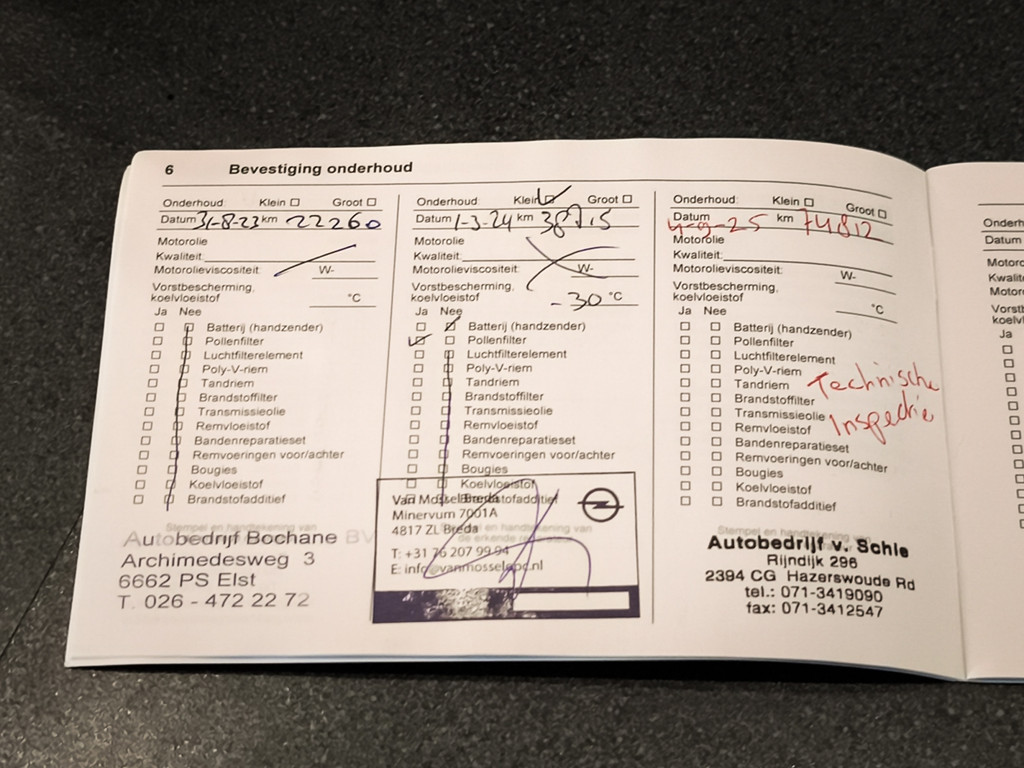 6 Bevestiging onderhoud
Onderhoud: Klein Groot
Datum 31-8-23 km 22260
Motorolie
Kwaliteit:
Motorolieviscositeit: W-
Vorstbescherming,
koelvloeistof °C
Ja Nee
Batterij (handzender)
Pollenfilter
Luchtfilterelement
Poly-V-riem
Tandriem
Brandstoffilter
Transmissieolie
Remvloeistof
Bandenreparatieset
Remvoeringen voor/achter
Bougies
Koelvloeistof
Brandstofadditief
Stempel en handtekening van
Autobedrijf Bochane BV
Archimedesweg 3
6662 PS Elst
T. 026 - 472 22 72
Onderhoud: Klein Groot
Datum 1-3-24 km 38715
Motorolie
Kwaliteit:
Motorolieviscositeit: W-
Vorstbescherming,
koelvloeistof -30 °C
Ja Nee
Batterij (handzender)
Pollenfilter
Luchtfilterelement
Poly-V-riem
Tandriem
Brandstoffilter
Transmissieolie
Remvloeistof
Bandenreparatieset
Remvoeringen voor/achter
Bougies
Koelvloeistof
Brandstofadditief
Van Mossel Breda
Minervum 7001A
4817 ZL Breda
T: +31 76 207 99 94
E: info@vanmosselopc.nl
Onderhoud: Klein Groot
Datum 4-9-25 km 74812
Motorolie
Kwaliteit:
Motorolieviscositeit: W-
Vorstbescherming,
koelvloeistof °C
Ja Nee
Batterij (handzender)
Pollenfilter
Luchtfilterelement
Poly-V-riem
Tandriem
Brandstoffilter
Transmissieolie
Remvloeistof
Bandenreparatieset
Remvoeringen voor/achter
Bougies
Koelvloeistof
Brandstofadditief
Technische
Inspectie
Stempel en handtekening van
Autobedrijf v. Schie
Rijndijk 296
2394 CG Hazerswoude Rd
tel.: 071-3419090
fax: 071-3412547
Datum
Ja